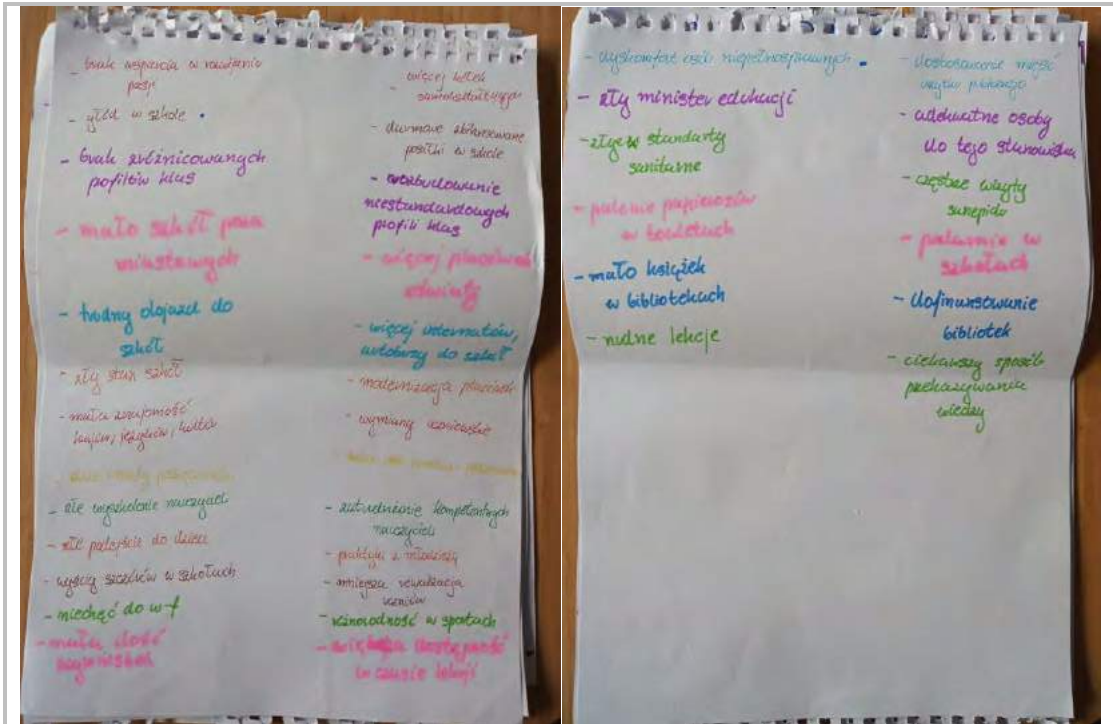 - brak wsparcia w rozwijaniu
pasji
- głód w szkole
- brak zróżnicowanych
pofilów klas
- mało szkół poza
miastowych
- trudny dojazd do
szkół
- zły stan szkół
- mała znajomość
krajów, języków, kultur
- złe wyszkolenie nauczycieli
- złe podejście do dzieci
- wyścig szczurów w szkołach
- niechęć do w-f
- mała ilość
- więcej kółek
samokształcących
- darmowe zbilansowane
posiłki w szkole
- rozbudowanie
niestandardowych
profili klas
- więcej placówek
oświaty
- więcej internatów,
autobusy do szkół
- modernizacja placówek
- wymiany uczniowskie
- zatrudnienie kompetentnych
nauczycieli
- praktyki z młodzieżą
- mniejsza rywalizacja
uczniów
- różnorodność w sportach
- większa dostępność
w czasie lekcji
- dyskomfort osób niepełnosprawnych
- zły minister edukacji
- złe standarty
sanitarne
- palenie papierosów
w toaletach
- mało książek
w bibliotekach
- nudne lekcje
- dostosowanie miejsc
użytku publicznego
- adekwatne osoby
do tego stanowiska
- częste wizyty
sanepidu
- palarnie w
szkołach
- dofinansowanie
bibliotek
- ciekawszy sposób
przekazywania
wiedzy